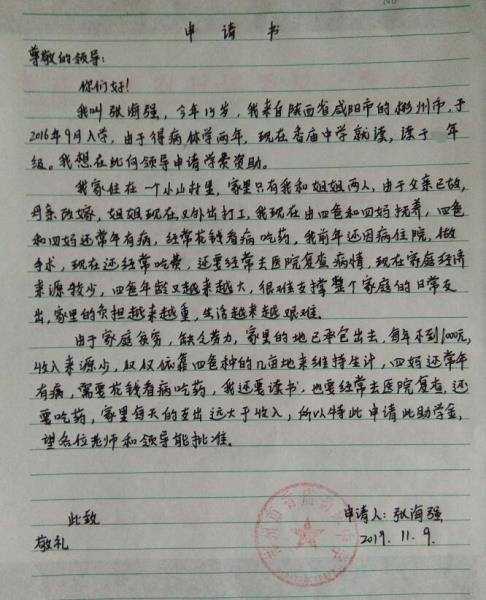 申请书
尊敬的领导:
你们好!
我叫张海强,今年15岁,我来自陕西省咸阳市的彬州市,于
2016年9月入学,由于得病休学两年,现在香庙中学就读,读于 年
级。我想在此向领导申请学费资助。
我家住在一个小山村里,家里只有我和姐姐两人,由于父亲已故,
母亲改嫁,姐姐现在又外出打工,我现在由四爸和四妈抚养,四爸
和四妈还常年有病,经常花钱看病吃药,我前年还因病住院,做
手术,现在还经常吃药,还要经常去医院复查病情,现在家庭经济
来源较少,四爸年龄又越来越大,很难支撑整个家庭的日常支
出,家里的负担越来越重,生活越来越艰难。
由于家庭贫穷,缺乏劳力,家里的地已承包出去,每年不到1000元,
收入来源少,仅仅依靠四爸种的几亩地来维持生计,四妈还常年
有病,需要花钱看病吃药,我还要读书,也要经常去医院复查,还
要吃药,家里每天的支出远大于收入,所以特此申请此助学金,
望各位老师和领导能批准。
此致
敬礼
申请人:张海强
2019.11.9.